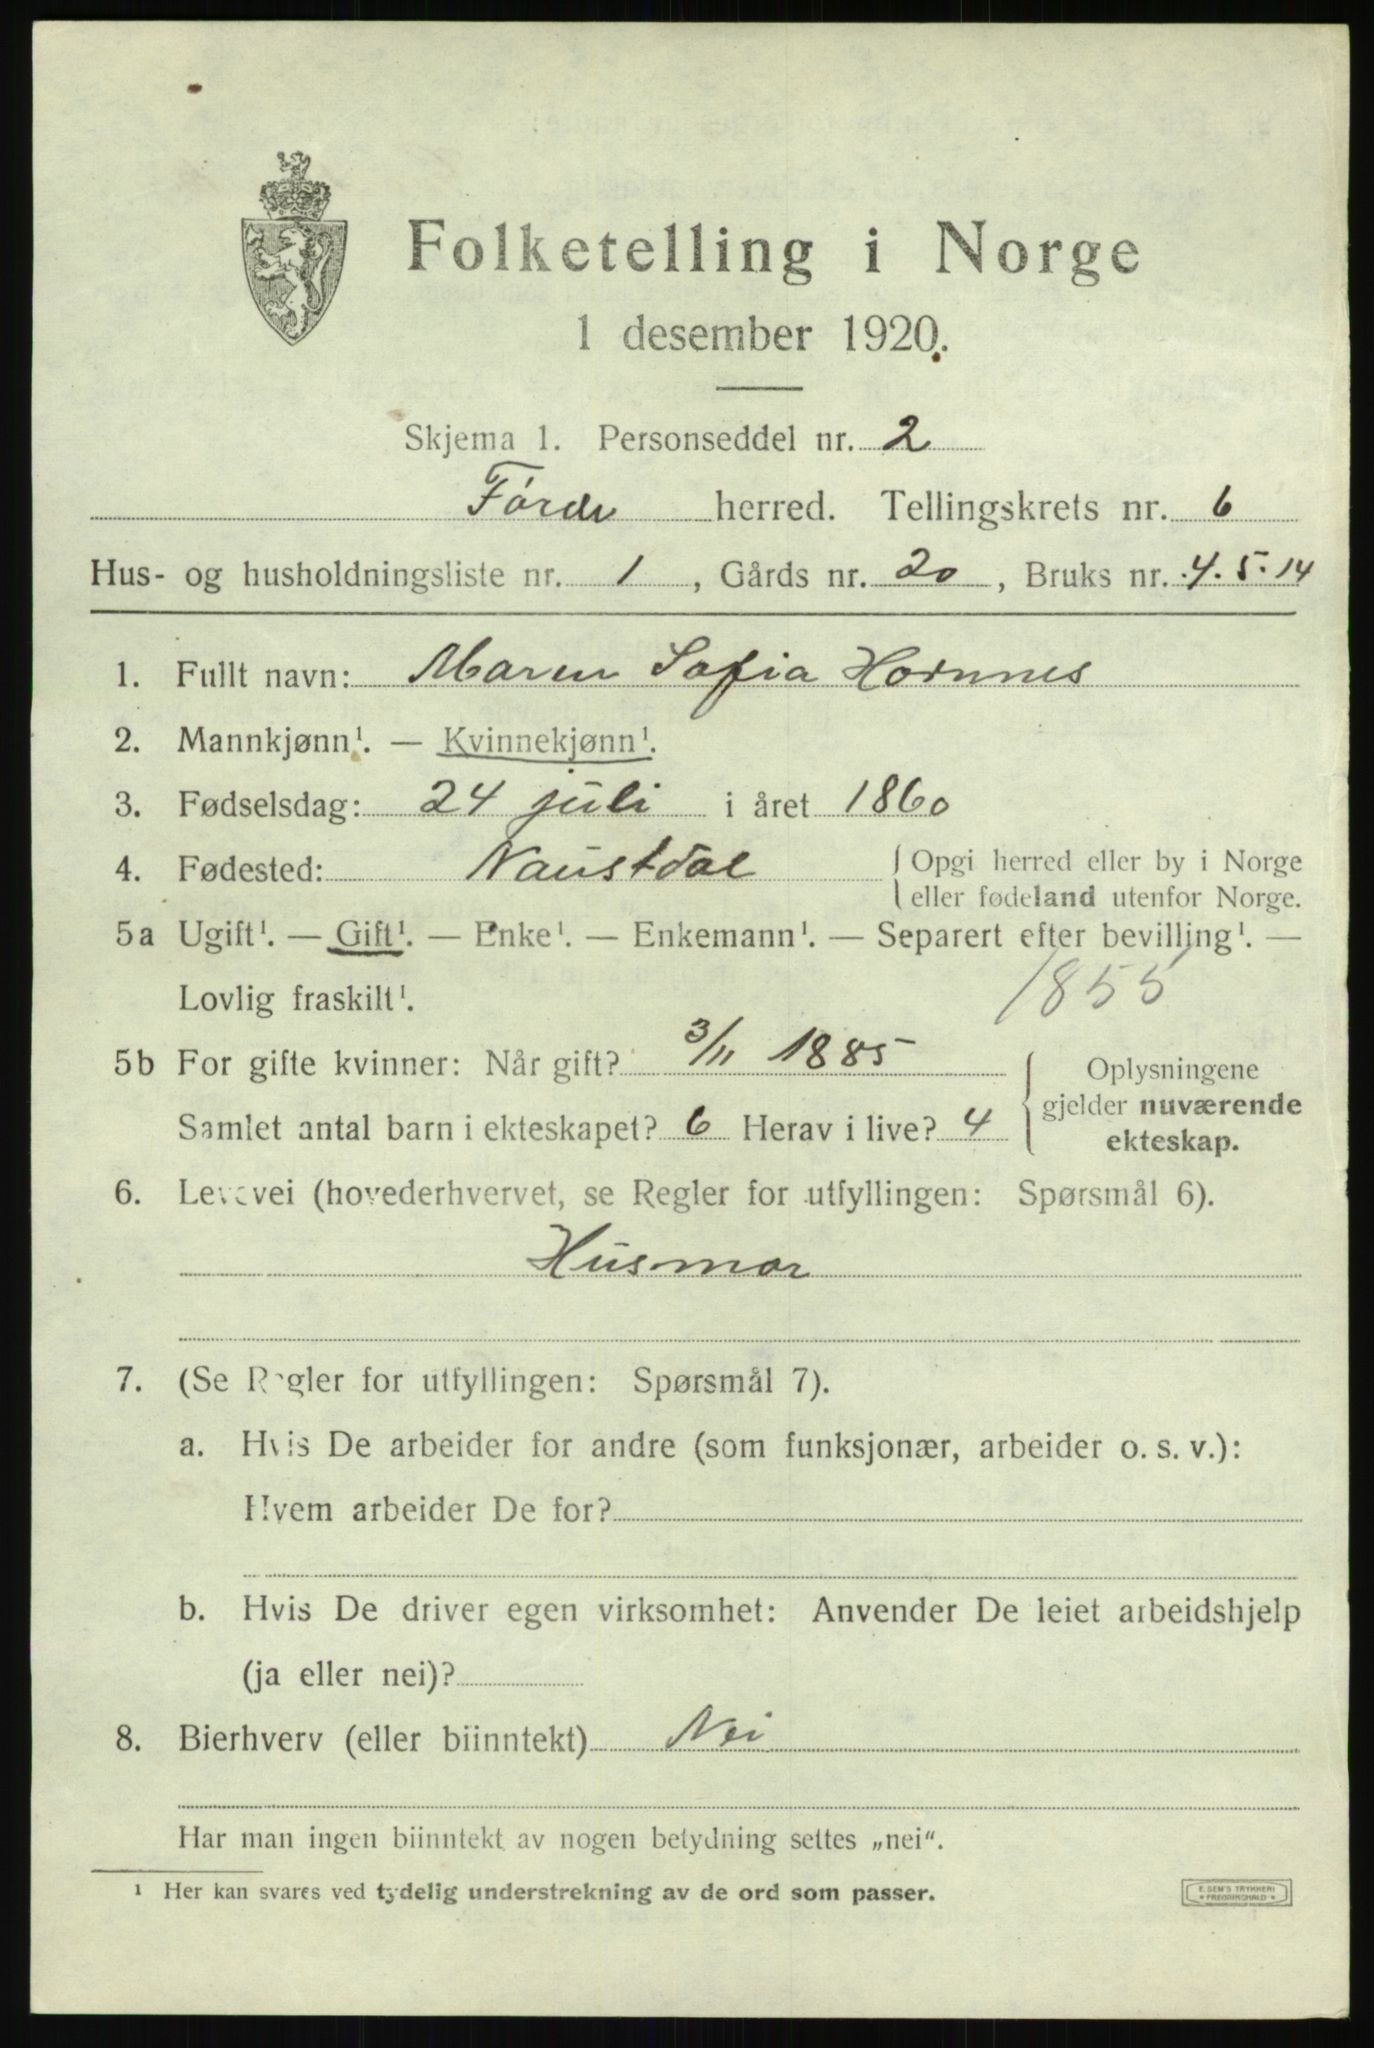 Folketelling i Norge
1 desember 1920.
Skjema 1. Personseddel nr. 2
Førde herred. Tellingskrets nr. 6
Hus- og husholdningsliste nr. 1, Gårds nr. 20, Bruks nr. 4.5.14
1. Fullt navn: Maren Sofia Hornnes
2. Mannkjønn¹. — Kvinnekjønn¹.
3. Fødselsdag: 24 juli i året 1860
4. Fødested: Naustdal { Opgi herred eller by i Norge
eller fødeland utenfor Norge.
5a Ugift¹. — Gift¹. — Enke¹. — Enkemann¹. — Separert efter bevilling¹. —
Lovlig fraskilt¹. 1855
5b For gifte kvinner: Når gift? 3/11 1885
Samlet antal barn i ekteskapet? 6 Herav i live? 4
{ Oplysningene
gjelder nuværende
ekteskap.
6. Levevei (hovederhvervet, se Regler for utfyllingen: Spørsmål 6).
Husmor
7. (Se Regler for utfyllingen: Spørsmål 7).
a. Hvis De arbeider for andre (som funksjonær, arbeider o. s. v.):
Hvem arbeider De for?
b. Hvis De driver egen virksomhet: Anvender De leiet arbeidshjelp
(ja eller nei)?
8. Bierhverv (eller biinntekt) Nei
Har man ingen biinntekt av nogen betydning settes „nei“.
¹ Her kan svares ved tydelig understrekning av de ord som passer.
E. SEM'S TRYKKERI
* FREDRIKSHALD *